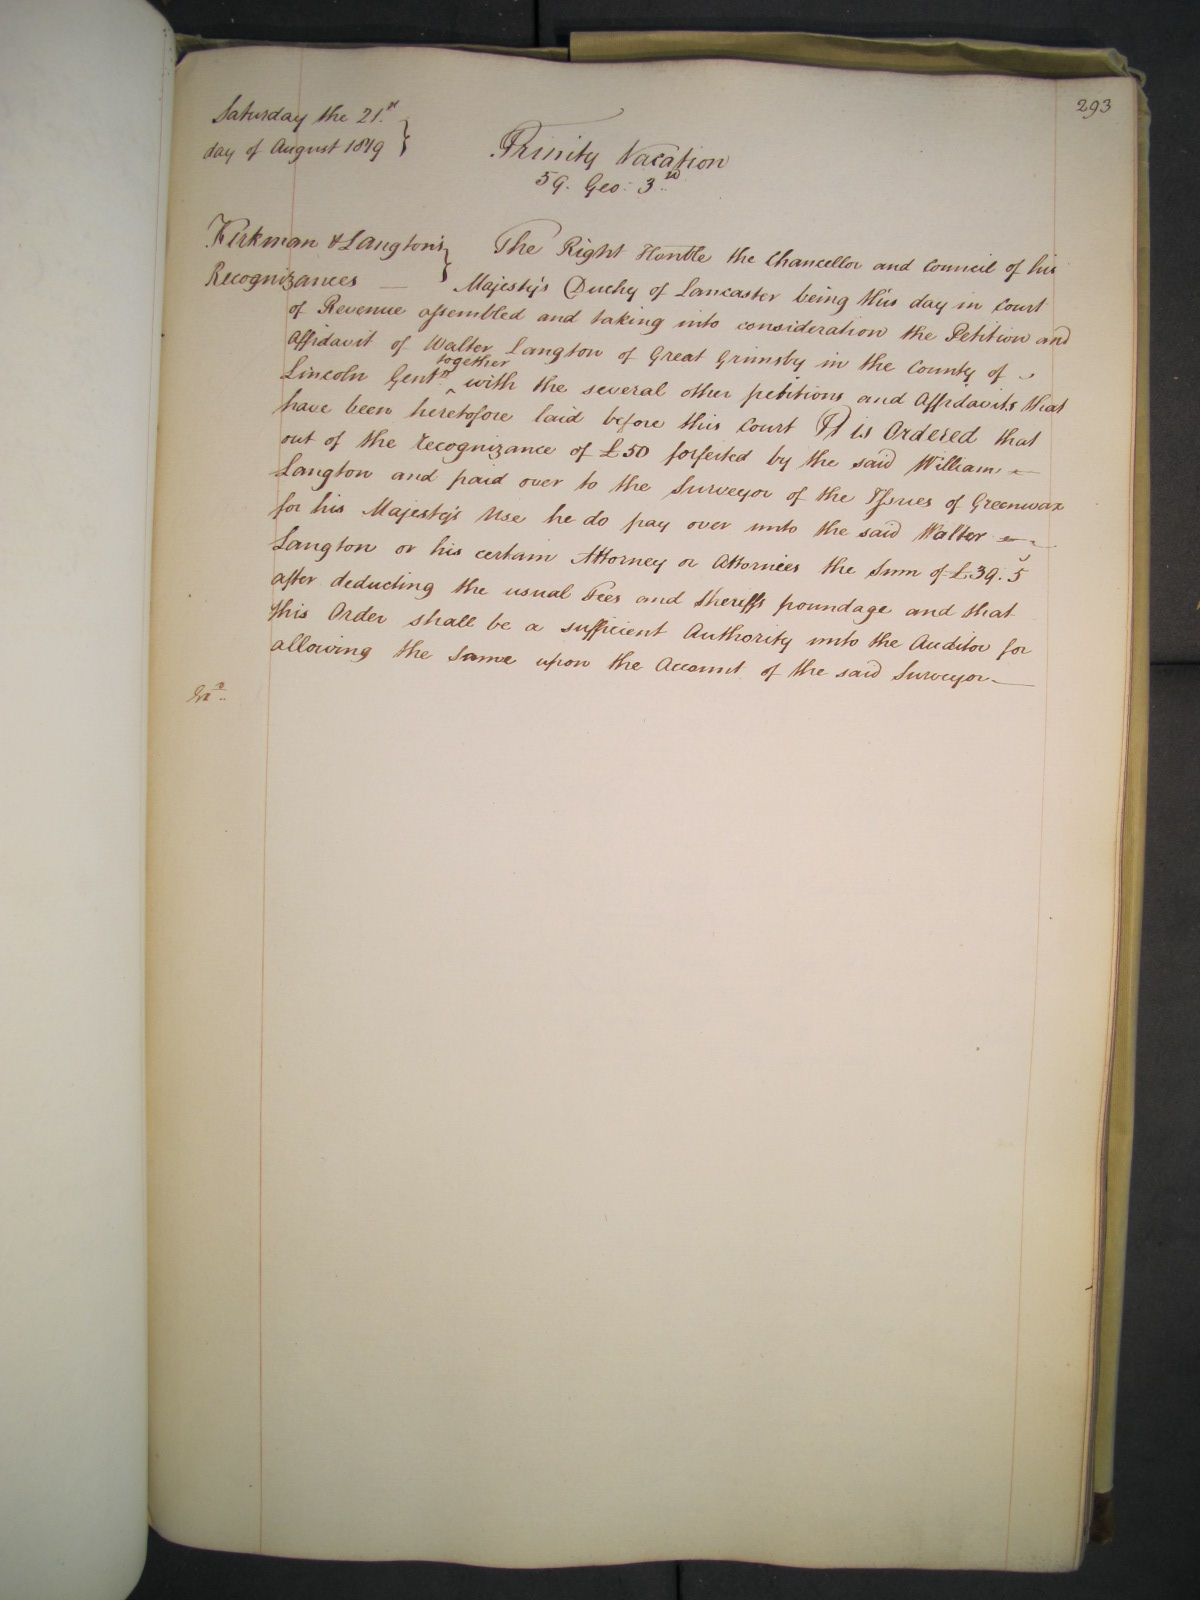 293
Saturday the 21.st
day of August 1819
Trinity Vacation
59. Geo: 3.rd
Kirkman & Langton's
Recognizances —
The Right Honble the Chancellor and Council of his
Majesty's Duchy of Lancaster being this day in Court
of Revenue assembled and taking into consideration the Petition and
Affidavit of Walter Langton of Great Grimsby in the County of
together
Lincoln Gent.n ^ with the several other petitions and Affidavits that
have been heretofore laid before this Court It is Ordered that
out of the recognizance of £50 forfeited by the said William
Langton and paid over to the Surveyor of the Issues of Greenwax
for his Majesty's Use he do pay over unto the said Walter
Langton or his certain Attorney or Attornies the Sum of £39.5
after deducting the usual Fees and Sheriffs poundage and that
this Order shall be a sufficient Authority unto the Auditor for
allowing the Same upon the Account of the said Surveyor —